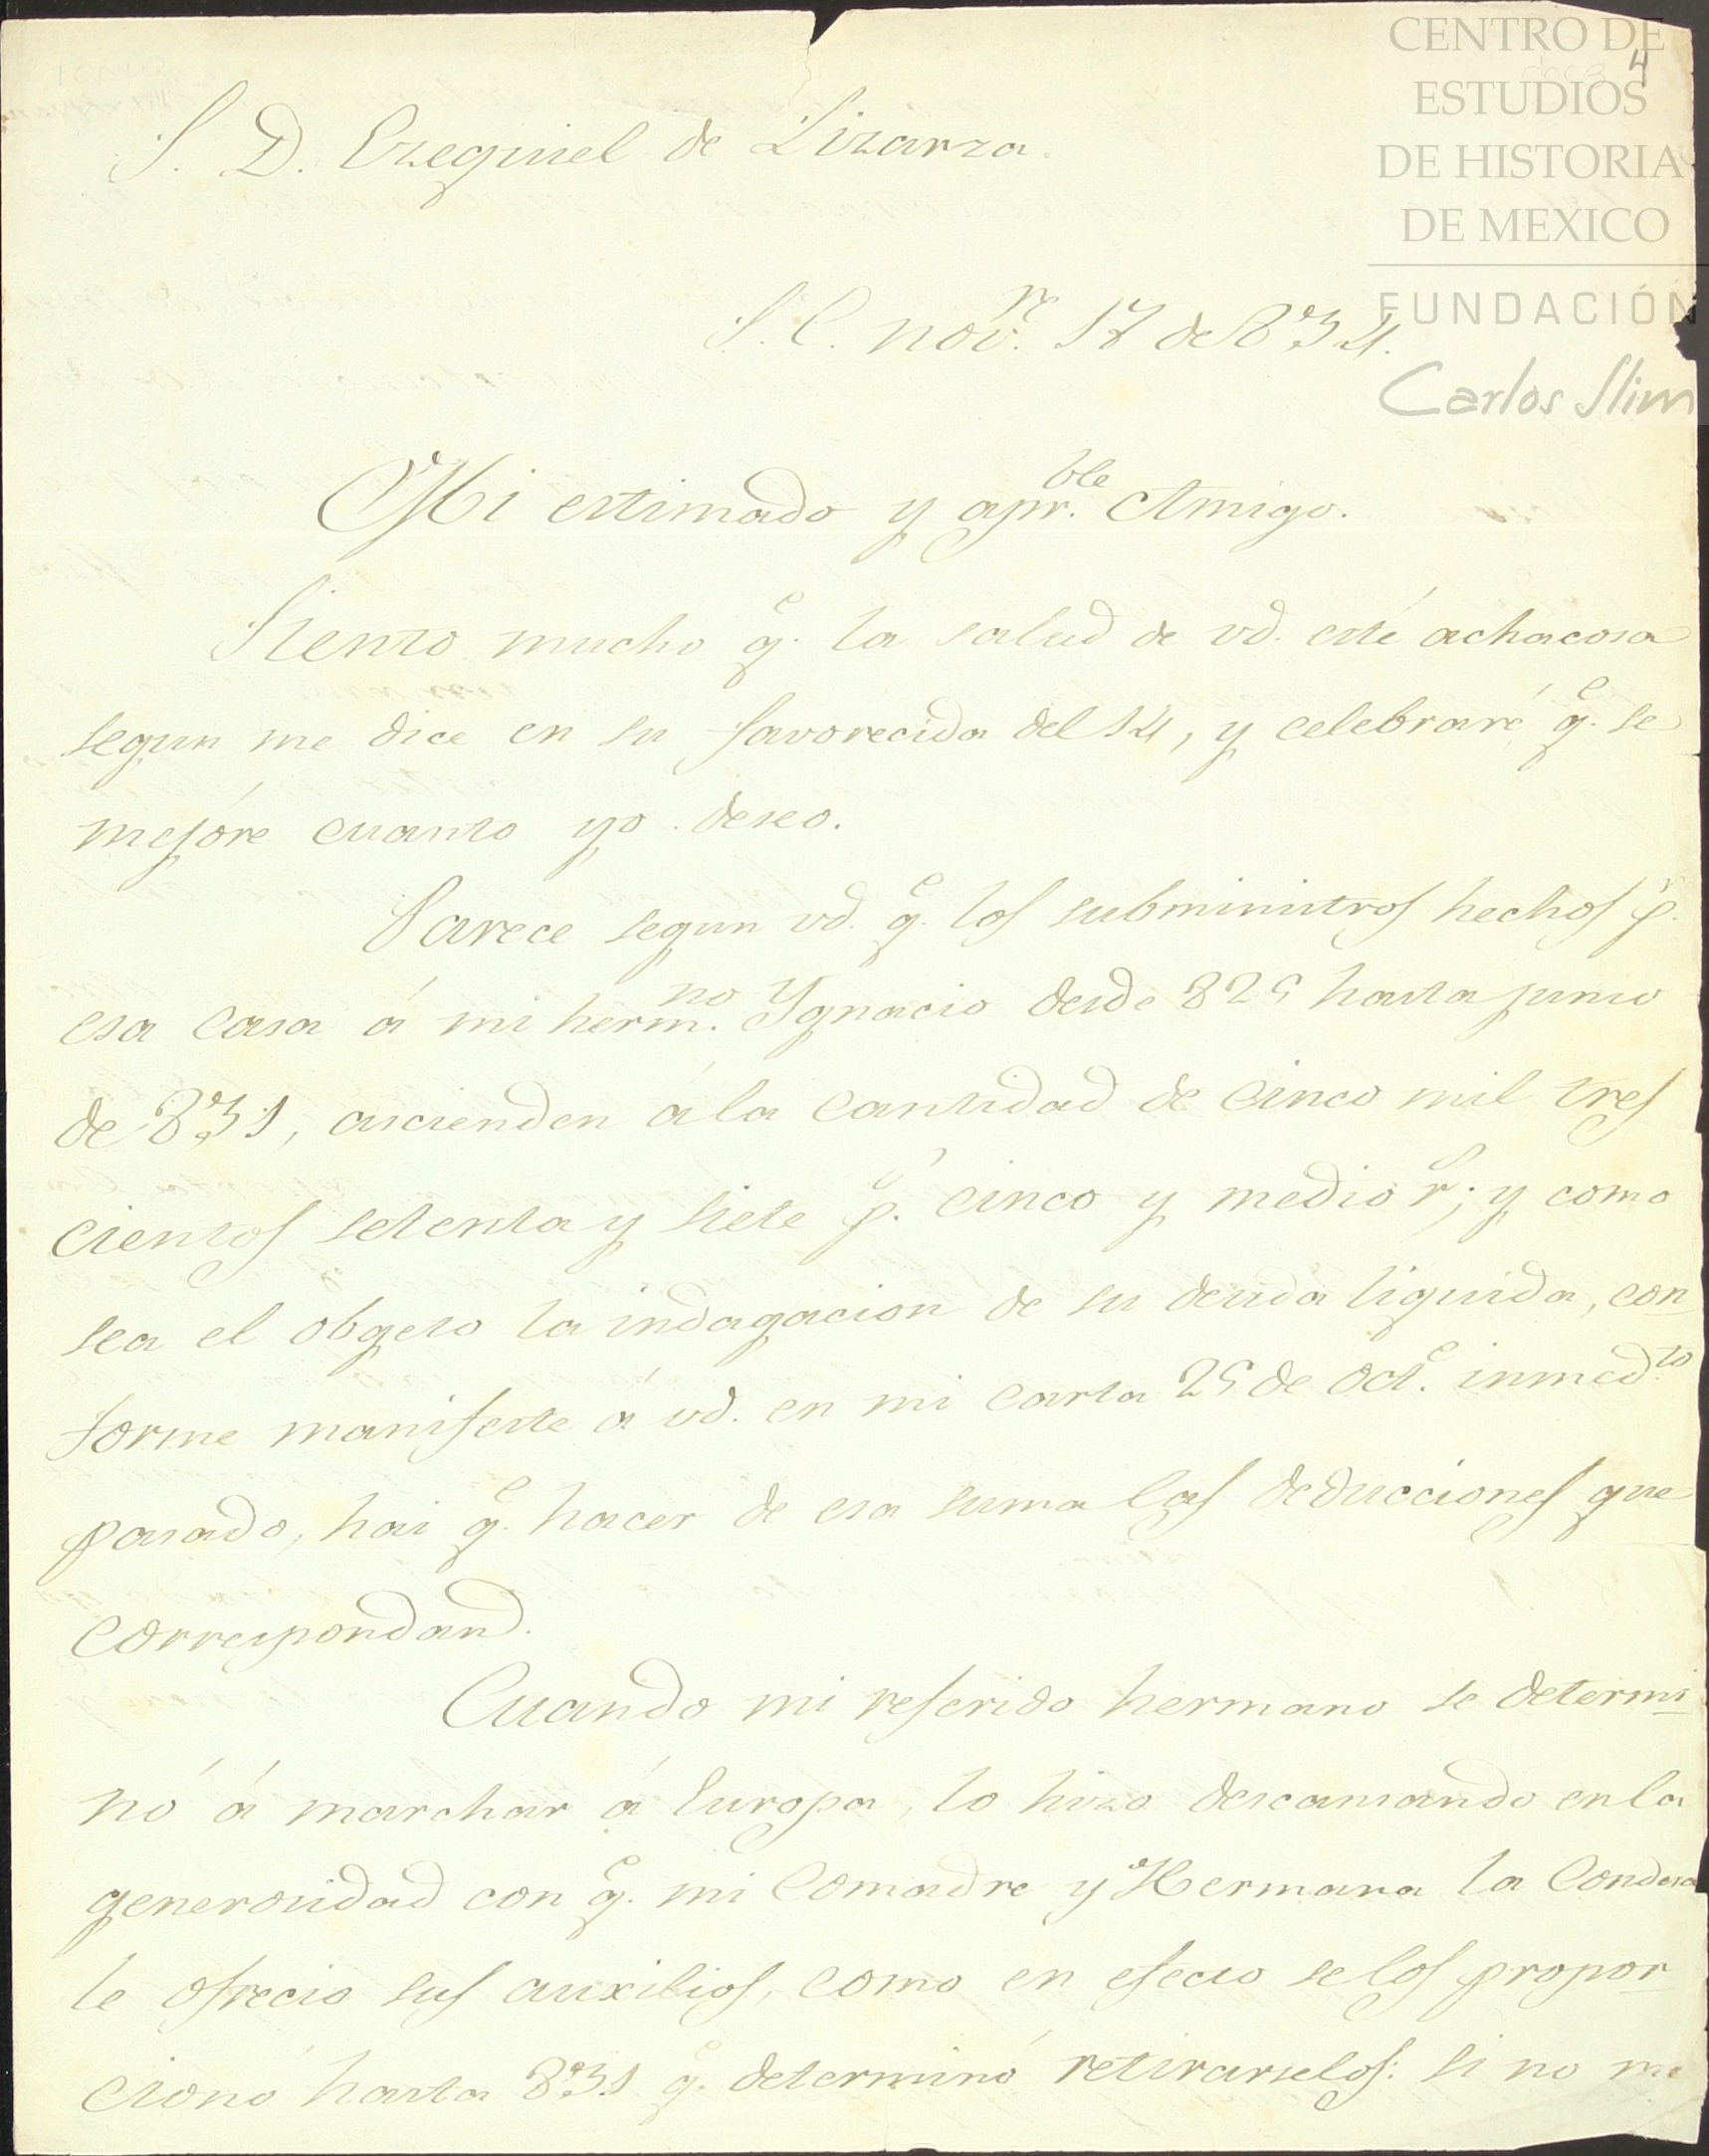 CENTRO DE
ESTUDIOS
DE HISTORIA
DE MEXICO
FUNDACIÓN
Carlos Slim
4
S. D. Ezequiel de Lizarza.
S. C. nov.re 17 de 834.
Mi estimado y apr.ble Amigo.
Siento mucho q.e la salud de vd. esté achacosa
segun me dice en su favorecida del 14, y celebraré q.e se
mejóre cuanto yo deseo.
Parece segun vd. q.e los subministros hechos p.r
esa casa á mi herm.no Ygnacio desde 825 hasta junio
de 831, ascienden á la cantidad de cinco mil tres
cientos setenta y siete p.s cinco y medio r.s; y como
sea el obgeto la indagacion de su deuda liquida, con
forme manifeste á vd. en mi carta 25 de Oct.e inmed.to
pasado, hai q.e hacer de esa suma las deducciones que
correspondan.
Cuando mi referido hermano se determi
nó á marchar á Europa, lo hizo descansando en la
generosidad con q.e mi Comadre y Hermana la Condesa
le ofrecio sus auxilios, como en efecto se los propor
cionó hasta 831 q.e determinó retirarselos: si no me